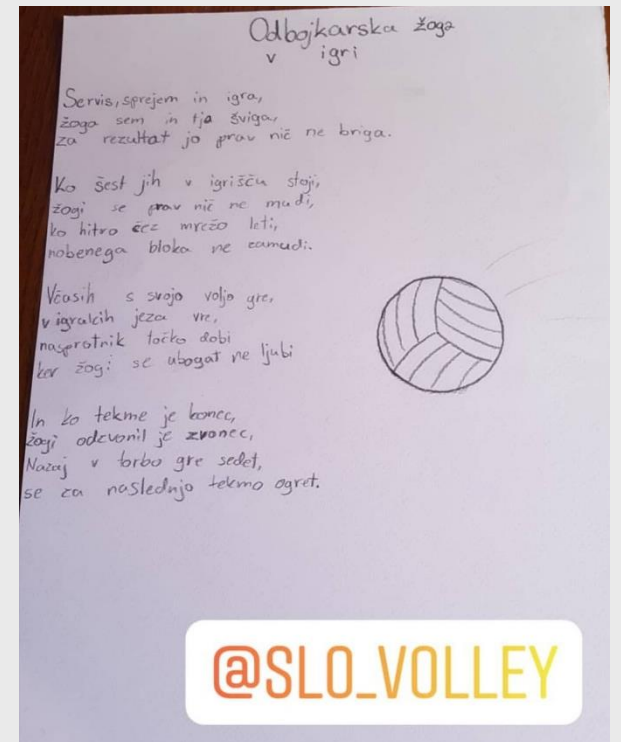 Odbojkarska žoga
v igri
Servis, sprejem in igra,
žoga sem in tja šviga,
za rezultat jo prav nič ne briga.
Ko šest jih v igrišču stoji,
žogi se prav nič ne mudi,
ko hitro čez mrežo leti,
nobenega bloka ne zamudi.
Včasih s svojo voljo gre,
v igralcih jeza vre,
nasprotnik točko dobi
ker žogi se ubogat ne ljubi
In ko tekme je konec,
žogi odzvonil je zvonec,
Nazaj v torbo gre sedet,
se za naslednjo tekmo ogret.
@SLO_VOLLEY